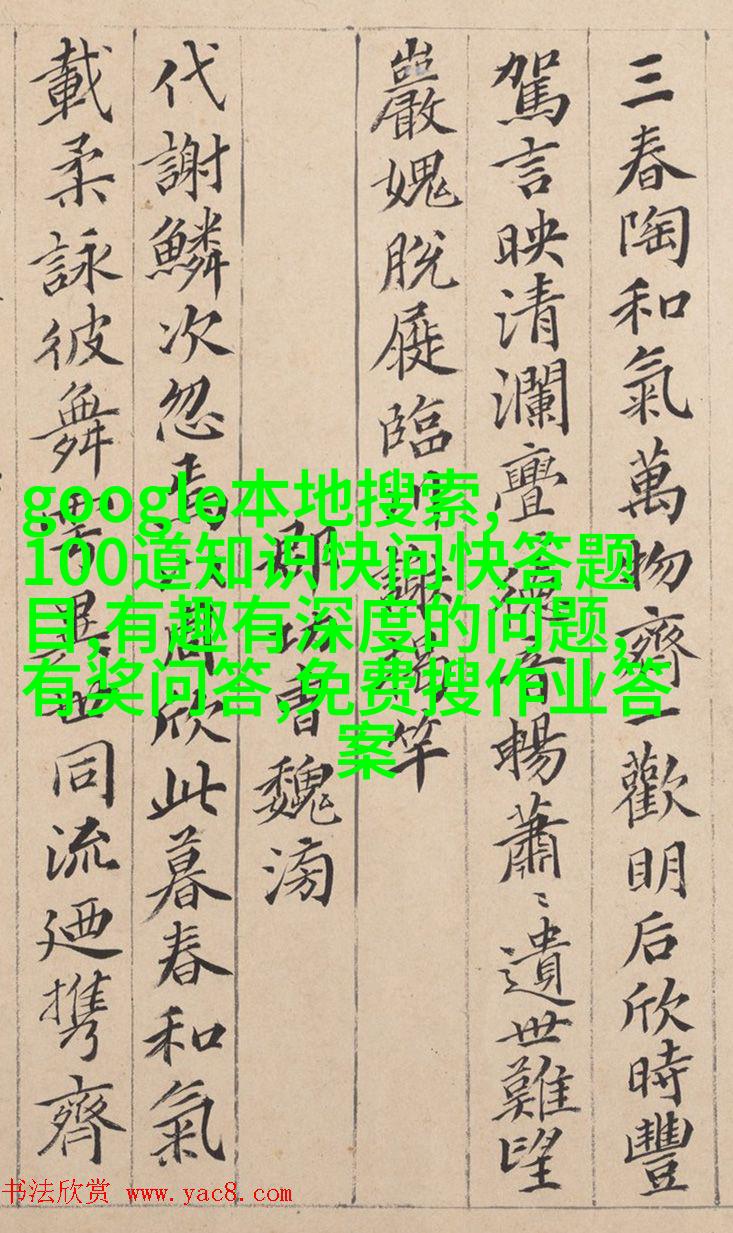 三春陶和氣萬物齊一歡明后欣時豐
駕言映清瀾亹德音暢蕭〻遺世難望
巖愧脫屣臨川謝揭竿
郡功曹魏滂
代謝鱗次忽焉周欣此暮春和氣
載柔詠彼舞雩異世同流廼携齊
google本地搜索,
100道知识快问快答题
目,有趣有深度的问题,
有奖问答,免费搜作业答
案
书法欣赏 www.yac8.com